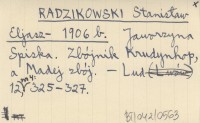 RADZIKOWSKI Stanisław
Eljasz - 1906 b. Jaworzyna
Spiska. Zbójnik Krudynhop,
a Madej zbój. - Lud (Lwów)
12, nr 4: 325-327.
BJ/042/0553